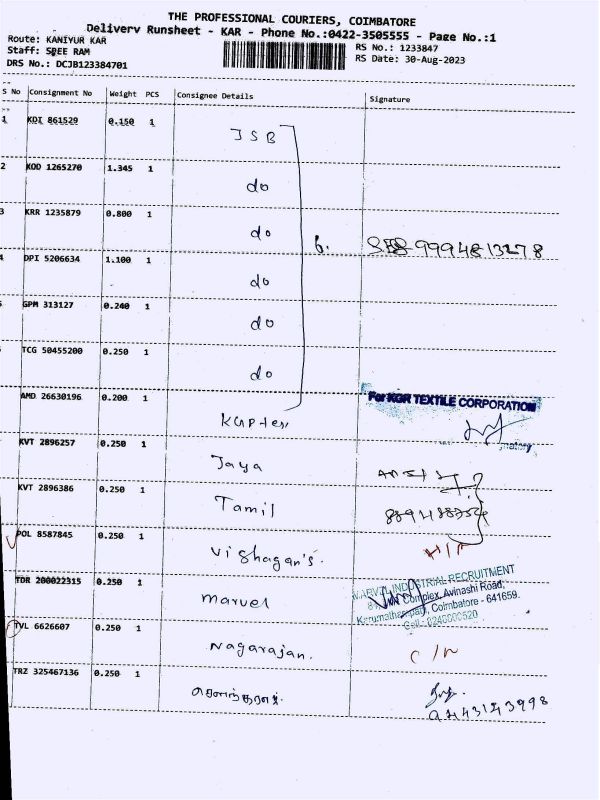 THE PROFESSIONAL COURIERS, COIMBATORE
Delivery Runsheet - KAR - Phone No.:0422-3505555 - Page No.:1
Route: KANIYUR KAR
Staff: SREE RAM
DRS No.: DCJB123384701
RS No.: 1233847
RS Date: 30-Aug-2023
S No Consignment No Weight PCS Consignee Details Signature
1 KDI 861529 0.150 1 JSB
2 KOD 1265270 1.345 1 do
3 KRR 1235879 0.800 1 do 6. 9994813278
4 DPI 5206634 1.100 1 do
GPM 313127 0.240 1 do
TCG 50455200 0.250 1 do
AMD 26630196 0.200 1 KGP tex
For KGR TEXTILE CORPORATION
KVT 2896257 0.250 1 Jaya
KVT 2896386 0.250 1 Tamil
POL 8587845 0.250 1 Vishagan's.
TDR 200022315 0.250 1 Marvel
MARVEL INDUSTRIAL RECRUITMENT
Complex, Avinashi Road,
Karumathampatti, Coimbatore - 641659.
TVL 6626607 0.250 1 Nagarajan.
TRZ 325467136 0.250 1